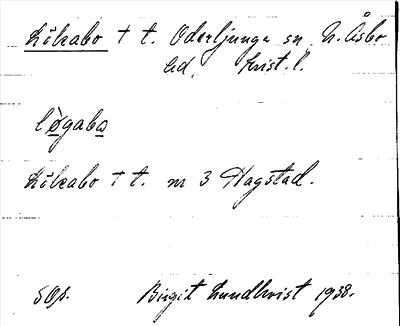 Lökabo † t. Oderljunga sn N. Åsbo
hd, Krist. l.
lø̀gabo
Lökabo † t. m 3 Hagstad.
SOp. Birgit Lundkvist 1938.